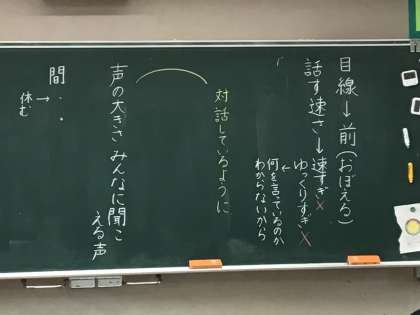 目線→前(おぼえる)
話す速さ→速すぎ×
ゆっくりすぎ×
←
何を言っているのか
わからないから
対話しているように
声の大きさ みんなに聞こ
える声
間・・
→
休む